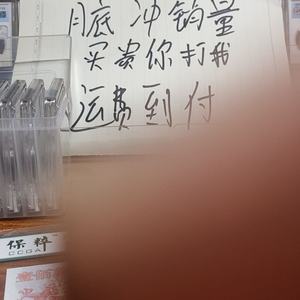 月底 冲销量
买贵你打我
运费到付
保粹
CCGA